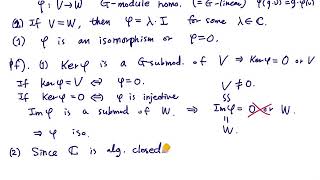 φ : V → W G-module homo. (= G-linear) φ(g·v)=g·φ(v)
(2) If V=W, then φ = λ·I for some λ∈ℂ.
(1) φ is an isomorphism or φ=0.
(pf). (1) Ker φ is a G-submod. of V ⇒ Ker φ = 0 or V
If Ker φ = V ⇔ φ=0. V ≠ 0.
If Ker φ = 0 ⇔ φ is injective
Im φ is a submod of W. ⇒ Im φ = 0 or W.
W.
⇒ φ iso.
(2) Since ℂ is alg. closed.